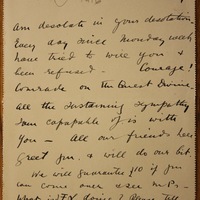 am desolate in your desolation
Every day since Monday week
have tried to write you &
been refused - Courage!
Comrade on the Quest Divine
all the sustaining sympathy
I am capapable of is with
you - All our friends here
greet you & will do our bit.
We will guarantee $10 if you
can come over & see Mr P -
What is doing? Please Tell